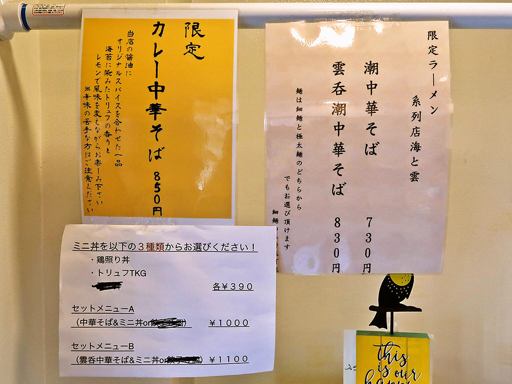 限定
カレー中華そば 850円
当店の醤油に
オリジナルスパイスを合わせた一品
海苔に染みたトリュフの香りと
レモンで風味を変えながらお楽しみ下さい
※辛味の苦手な方はご注意ください
限定ラーメン
系列店海と雲
潮中華そば 730円
雲呑潮中華そば 830円
麺は細麺と極太麺のどちらから
でもお選び頂けます
ミニ丼を以下の３種類からお選びください！
・鶏照り丼
・トリュフTKG
各￥３９０
セットメニューA
（中華そば&ミニ丼or ￥１０００
セットメニューB
（雲呑中華そば&ミニ丼or ￥１１００
this
is our